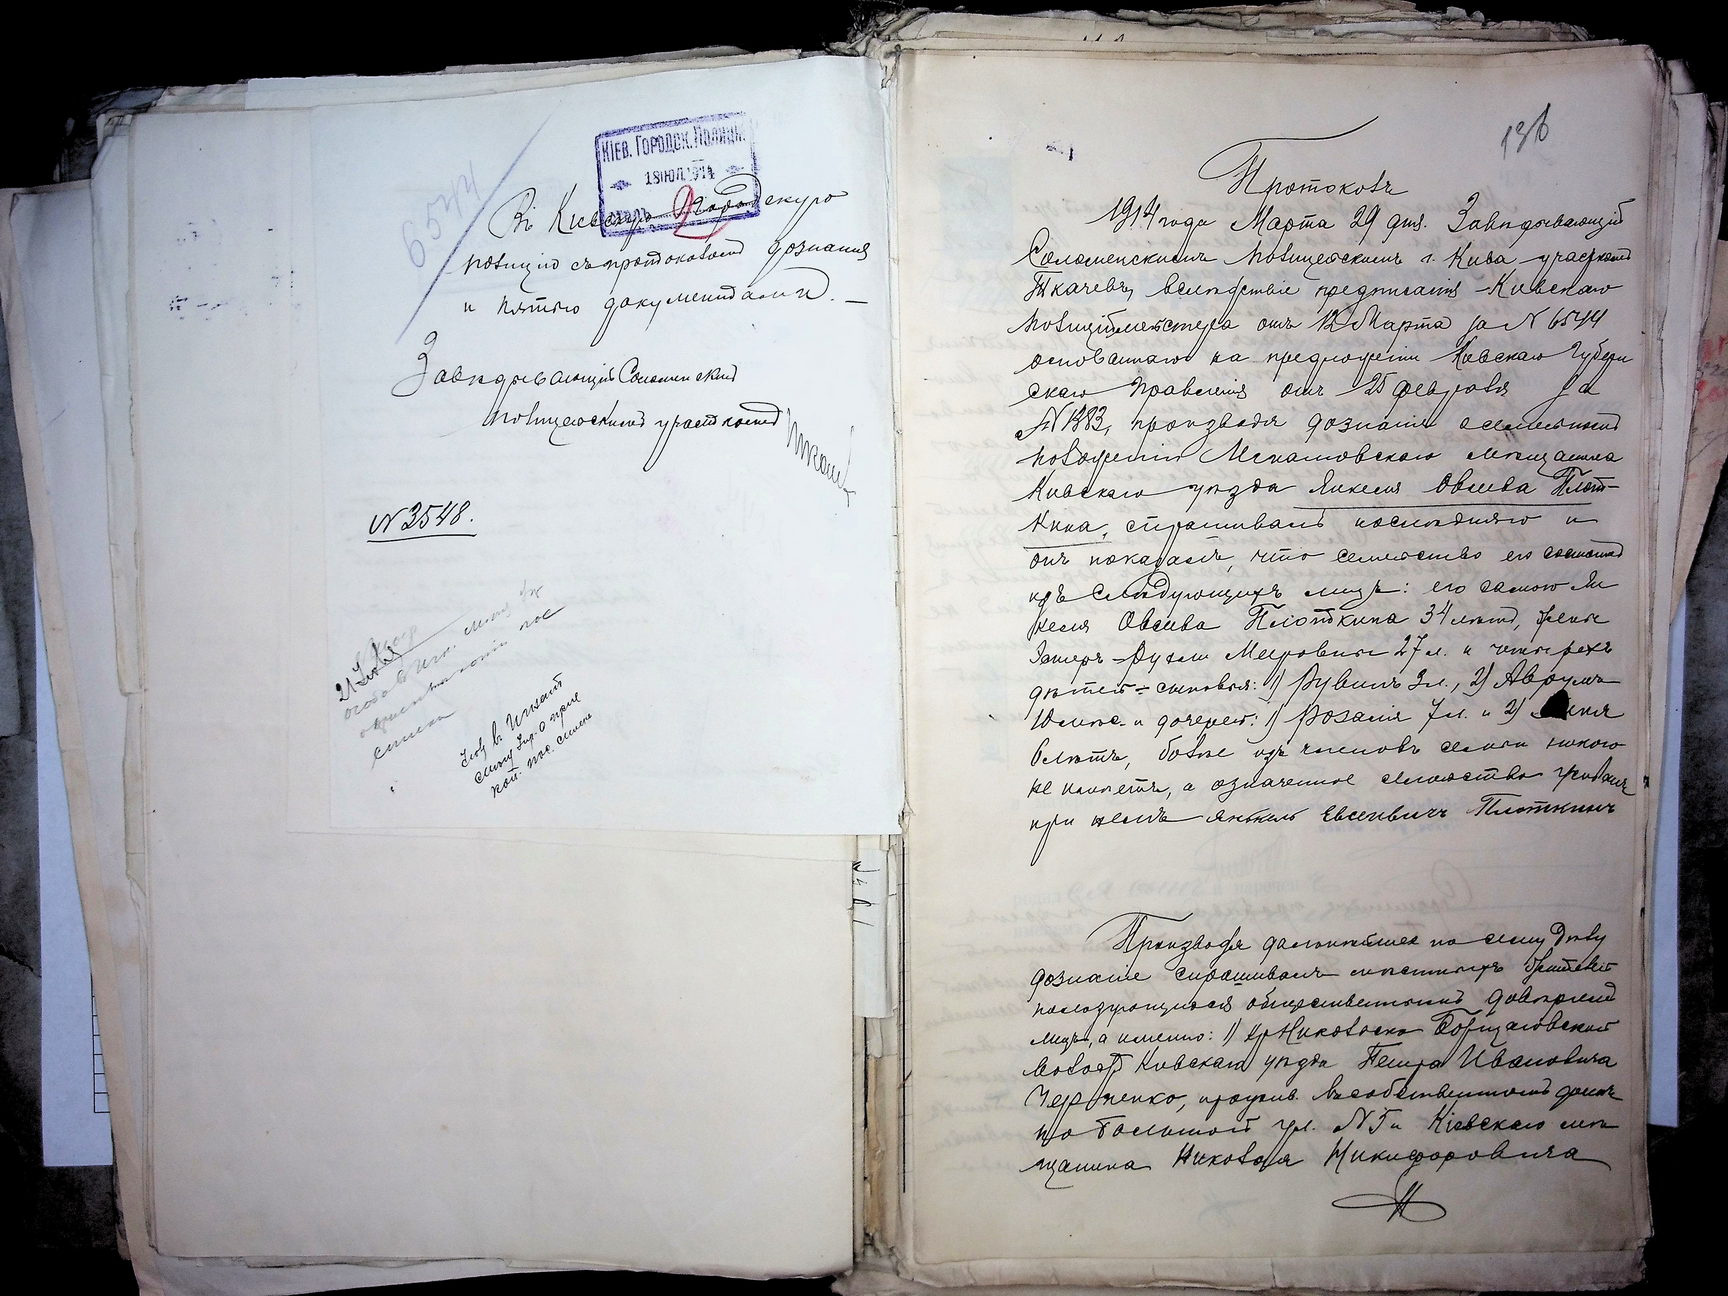 6544
КІЕВ. ГОРОДСК. ПОЛИЦІ.
18 ІЮЛ. 1914
Въ Кіевскую Городскую
полицію съ протоколомъ дознанія
и пятью документами. —
Завѣдывающій Соломенскимъ
полицейскимъ участкомъ Ткачевъ
№ 3548.
136
Протоколъ
1914 года Марта 29 дня. Завѣдывающій
Соломенскимъ полицейскимъ г. Кіева участкомъ
Ткачевъ, вслѣдствіе предписанія Кіевскаго
полиціймейстера отъ 12 Марта за № 6544
основаннаго на предложеніи Кіевскаго Губерн
скаго Правленія отъ 25 февраля за
№ 1383, производя дознаніе о семейномъ
положеніи Игнатовскаго мѣщанина
Кіевскаго уѣзда Янкеля Овсеева Плот-
кина, спрашивалъ послѣдняго и
онъ показалъ, что семейство его состоитъ
изъ слѣдующихъ лицъ: его самого Ян
келя Овсеева Плоткина 34 лѣтъ, жены
Рухли Мееровны 27 л. и четырехъ
дѣтей - сыновья: 1) Рувинъ 3 л., 2) Аврумъ
и дочерей: 1) Розалія 7 л. и 2)
лѣтъ, болѣе изъ членовъ семьи никого
не имѣетъ, а означенное семейство
при немъ Янкель Евсеевичъ Плоткинъ
Производя дальнѣйшее по сему дѣлу
дознаніе спрашивалъ мѣстныхъ жителей
пользующихся общественнымъ довѣріемъ
лицъ, а именно: 1) кр. Никольско Борщаговской
волости Кіевскаго уѣзда Петра Ивановича
прожив. въ собственномъ домѣ
по Большой ул. № 5 и Кіевскаго мѣ
щанина Николая Никифоровича